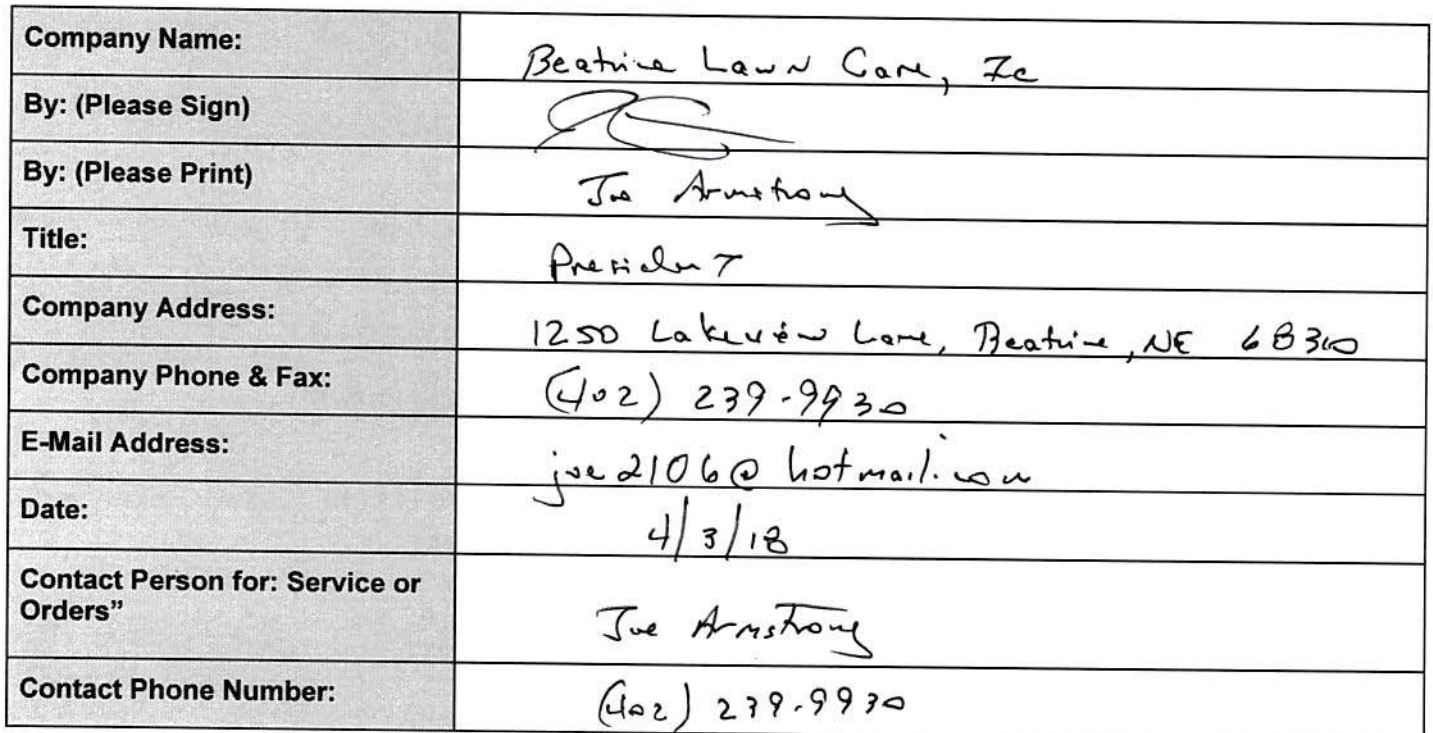 Company Name: Beatrice Lawn Care, Ic
By: (Please Sign)
By: (Please Print) Joe Armstrong
Title: President
Company Address: 1250 Lakeview Lane, Beatrice, NE 68310
Company Phone & Fax: (402) 239-9930
E-Mail Address: joe2106@hotmail.com
Date: 4/3/18
Contact Person for: Service or
Orders” Joe Armstrong
Contact Phone Number: (402) 239-9930